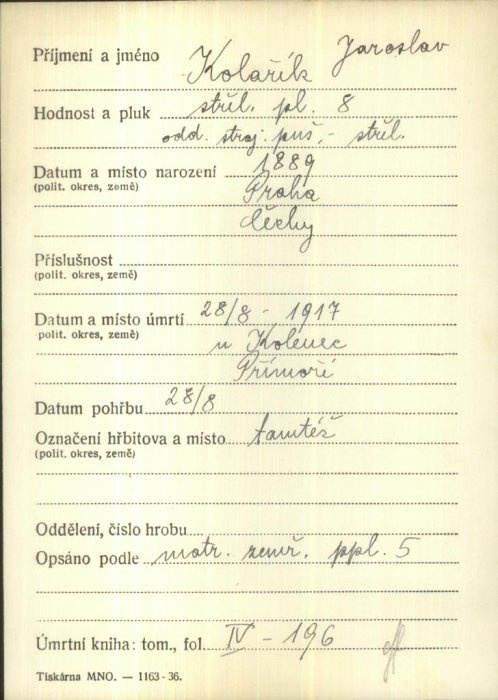 Příjmení a jméno Kolařík Jaroslav
Hodnost a pluk střel. pl. 8
odd. stroj. puš. - střel.
Datum a místo narození 1889
(polit. okres, země) Praha
Čechy
Příslušnost
(polit. okres, země)
Datum a místo úmrtí 28/8 - 1917
polit. okres, země) u Kolenec
Přímoří
Datum pohřbu 28/8
Označení hřbitova a místo tamtéž
(polit. okres, země)
Oddělení, číslo hrobu
Opsáno podle matr. zemř. ppl. 5
Úmrtní kniha: tom., fol. IV - 196
Tiskárna MNO. — 1163-36.